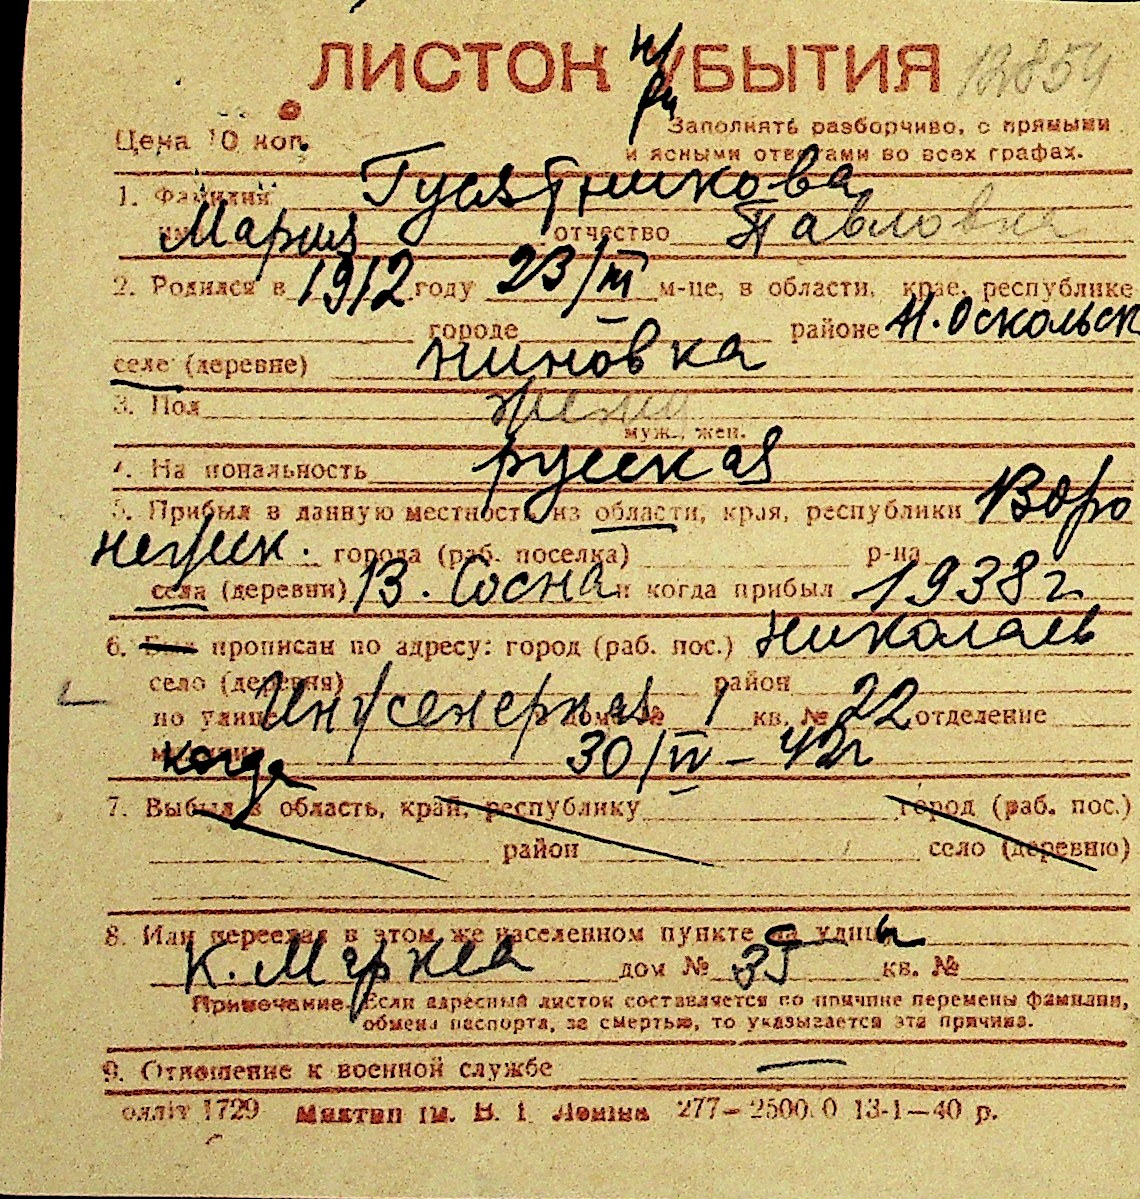 ЛИСТОК УБЫТИЯ 12854
при
Цена 10 коп. Заполнять разборчиво, с прямыми
и ясными ответами во всех графах.
1. Фамилия Гусятникова
имя Мария отчество Павловна
2. Родился в 1912 году 23/III м-це, в области, крае, республике
городе районе Н. Оскольск
селе (деревне) Ниновка
3. Пол жени
муж., жен.
4. Национальность русская
5. Прибыл в данную местность из области, края, республики Воро
нежск. города (раб. поселка) р-на
села (деревни) В. Сосна и когда прибыл 1938 г
6. Был прописан по адресу: город (раб. пос.) Николаев
село (деревня) район
по улице Инженерная дом № 1 кв. № 22 отделение
милиции когда 30/IV – 42 г
7. Выбыл в область, край, республику город (раб. пос.)
район село (деревню)
8. Или переехал в этом же населенном пункте на улицу с ул
К. Маркса дом № 35 кв. №
Примечание. Если адресный листок составляется по причине перемены фамилии,
обмена паспорта, за смертью, то указывается эта причина.
9. Отношение к военной службе —
олліт 1729 Миктип ім. В. І. Леніна 277–2500.0 13-1–40 р.